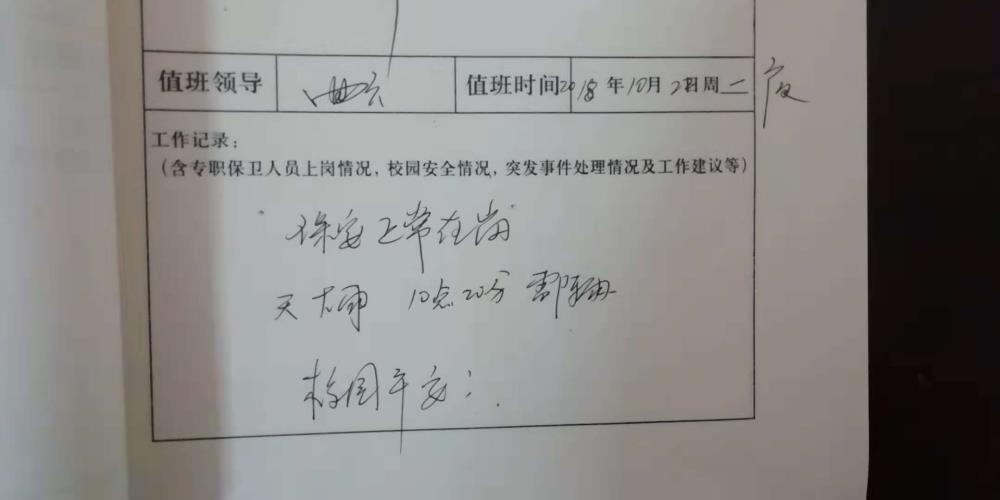 值班领导 曲云 值班时间 2018年10月2日周二 夜
工作记录：
（含专职保卫人员上岗情况，校园安全情况，突发事件处理情况及工作建议等）
保安正常在岗
天大雨 10点20分
校园平安；